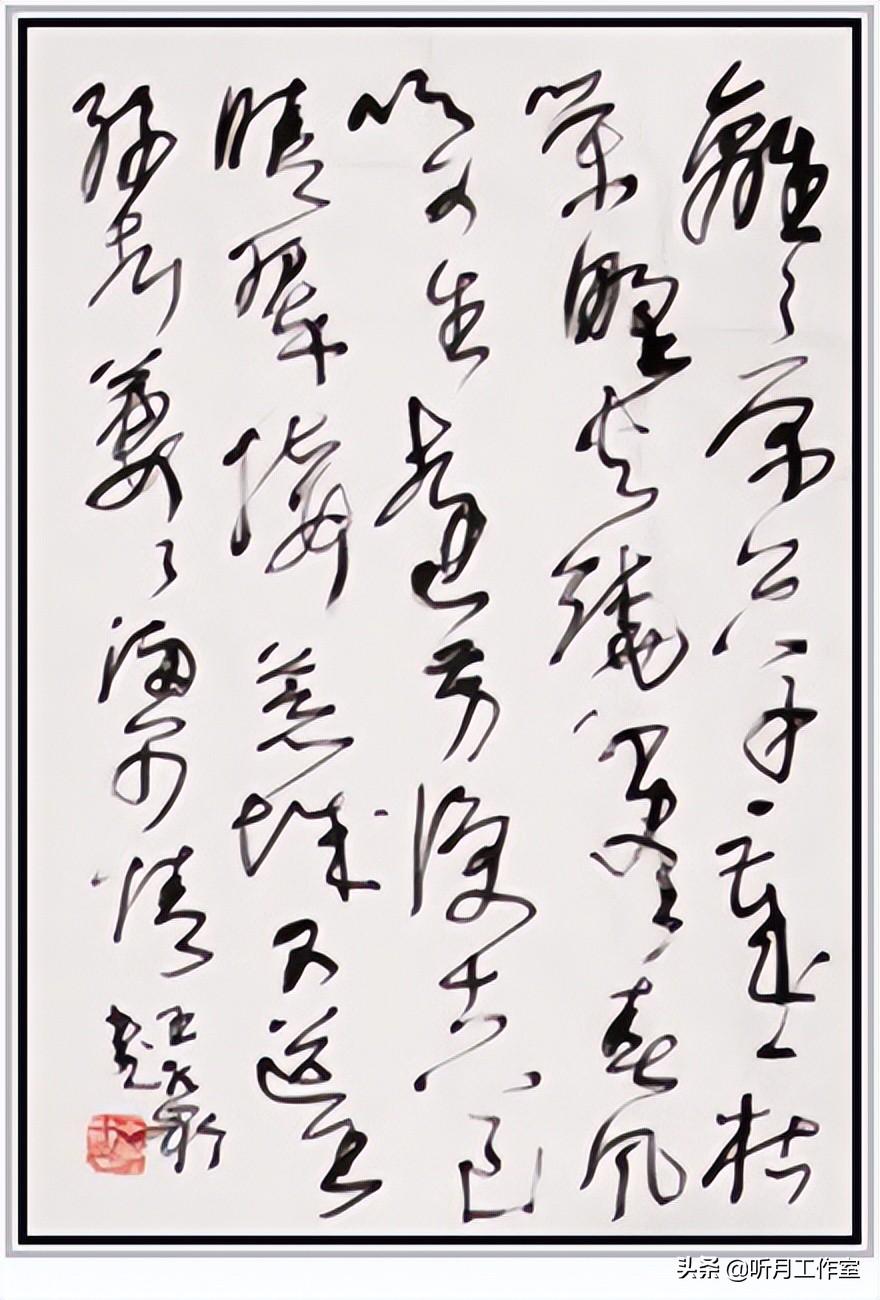 離々原上草一歲一枯
榮野火燒不盡春風
吹又生遠芳侵古道
晴翠接荒城又送王
孫去萋々滿別情
头条 @听月工作室